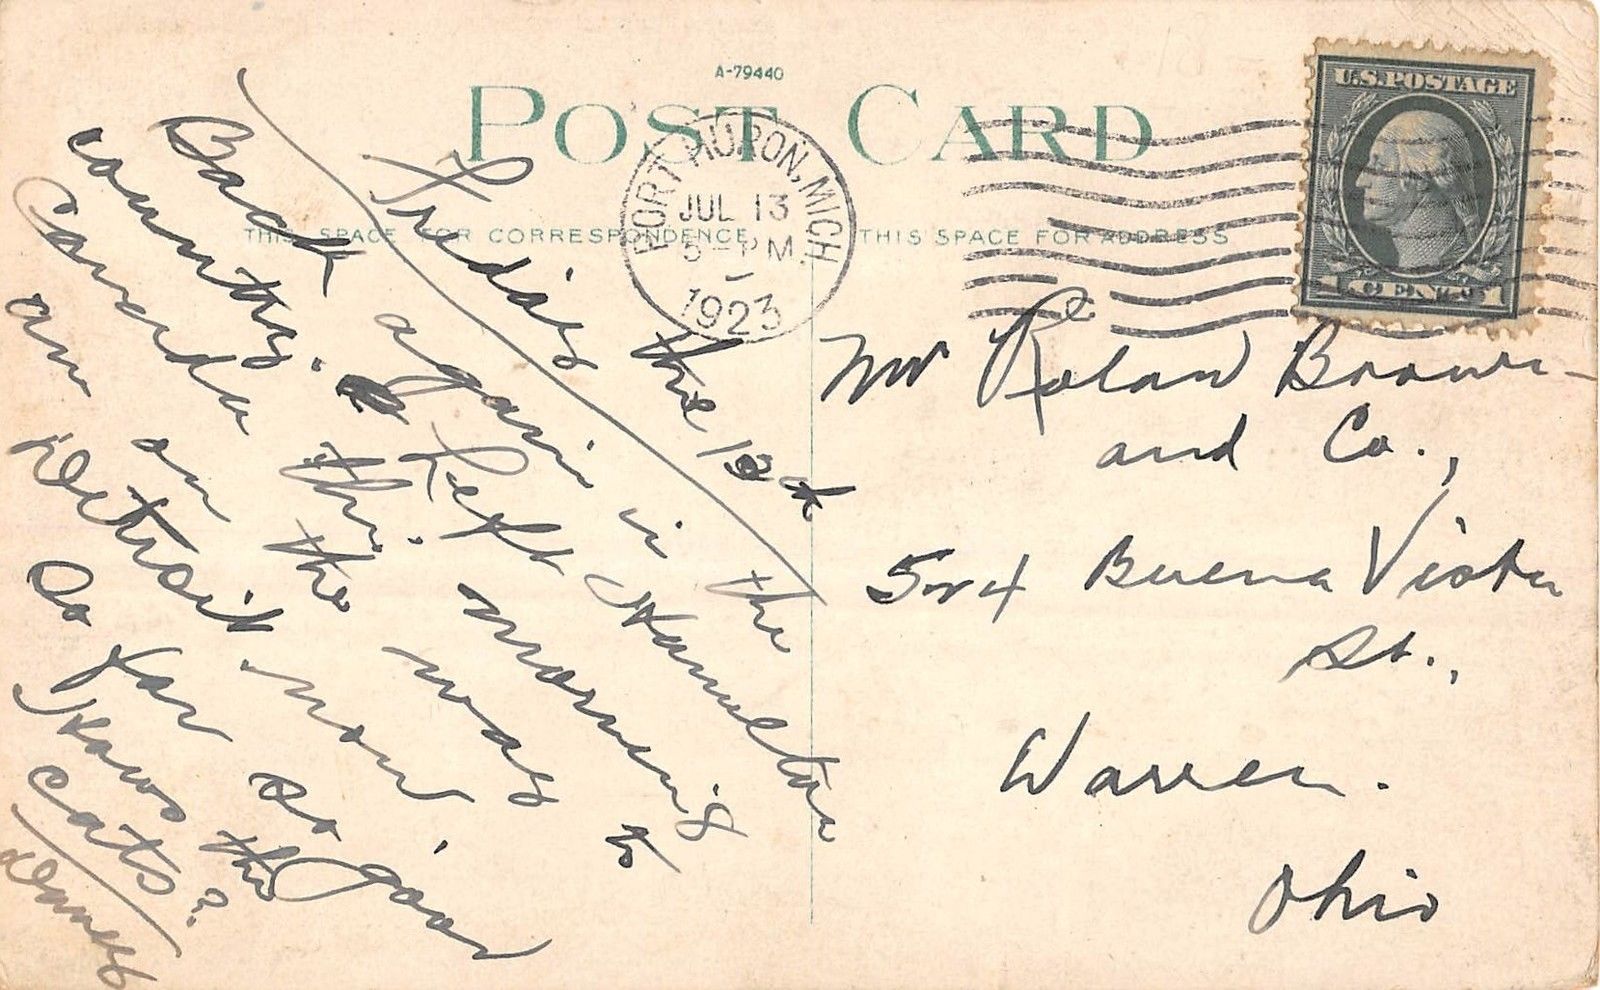 A-79440
POST CARD
THIS SPACE FOR CORRESPONDENCE
THIS SPACE FOR ADDRESS
PORT HURON, MICH.
JUL 13
5-PM
1923
U.S. POSTAGE
1 CENT 1
Friday the 13th
Back again in the
country. Left Hamilton
Canada this morning
am on the way to
Detroit now.
So far so good
Hows the
cats?
Mr Roland Brown
and Co.,
524 Buena Vista
St.,
Warren.
Ohio